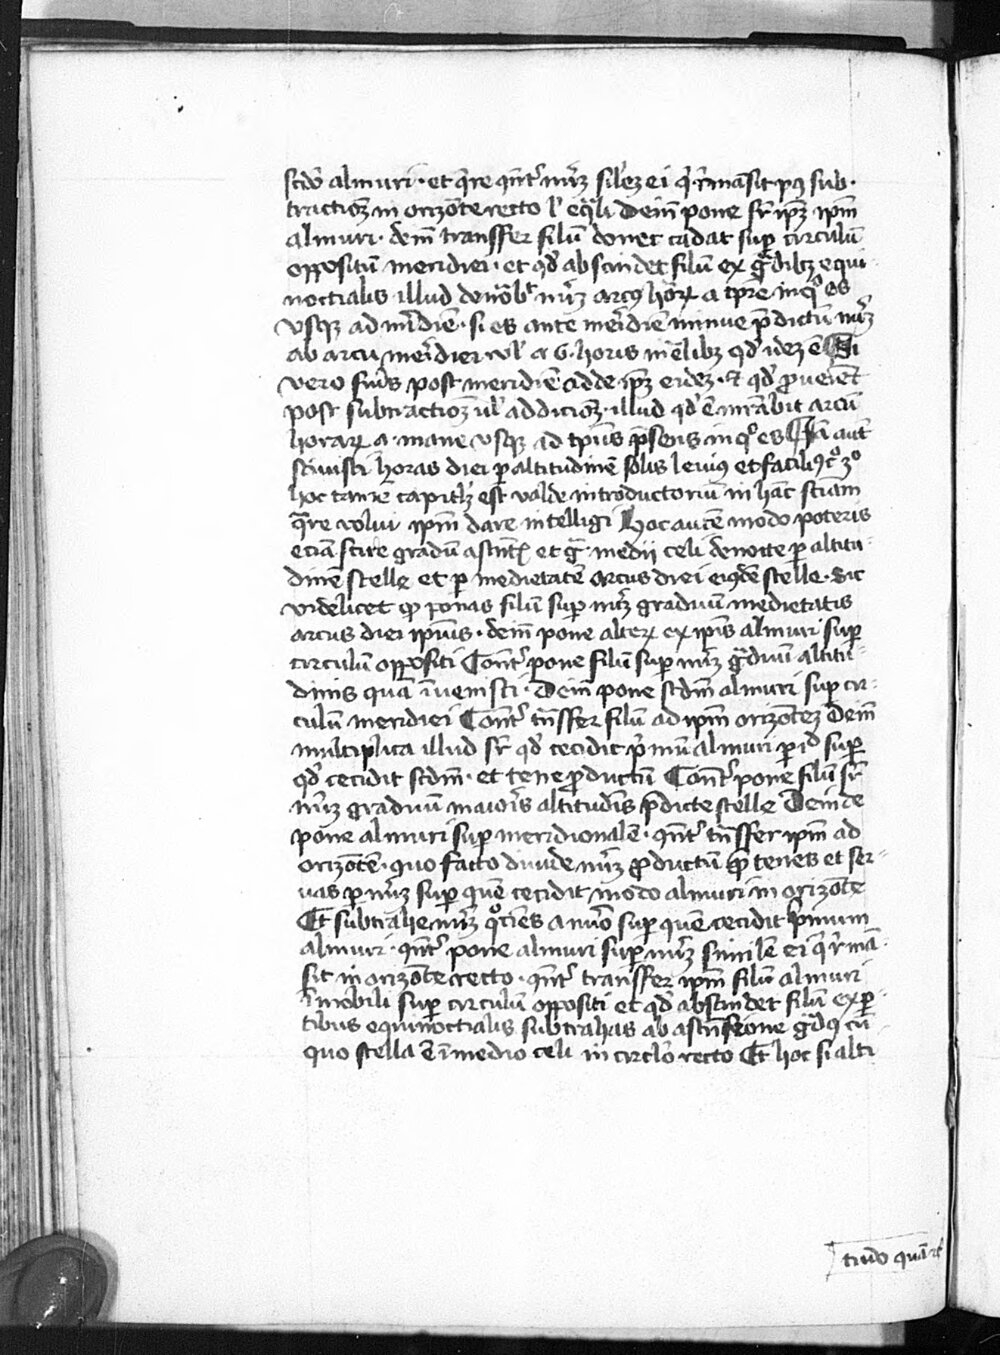 scdo almuri · et qre qnt' nūꝝ silez ei q' rmāsit pꝰ sub·
tractioēꝫ in orizōte recto l' eqli Deīn pone sr ipꝫ ipm
almuri · deīn transffer filū donec cadat supꝑ circulū
oppositū meridiei · et qd abscindet filū ex gdibꝫ equi-
noctialis illud denōbit nūꝝ arcꝰ horaꝝ a tpre in qo es
vsqꝫ ad mīdiē · si es ante meridiē minue pdictū nūꝝ
ab arcu meridiei vl' a 6 · horis inēlibꝫ qd idez ē Si
vero fuīs post meridiē adde ipꝫ eidez · et qd proueniēt
post subtractioēꝫ ul' addicionē · illud qd ē mrābit arcū
horarꝝ a · mane vsqꝫ ad tpus pſens in qo es Iā aut
sciuisti horas diei ꝑ altitudinē solis leuiꝰ et faciliꝰ
hoc tamē capitlꝫ est valde introductoriū in hāc sciām
qre volui ipm dare intelligi Hoc autē modo poteris
eciā scire gradū ascntꝭ et g medii celi de nocte ꝑ altitu-
dinē stelle et ꝑ medietatē arcus diei eiꝰdē stelle · Sic
videlicet qꝫ ponas filū supꝑ nūꝝ graduū medietatis
arcus diei ipsius · deīn pone alterꝝ ex ipīs almuri supꝑ
circulū oppositi Cont' pone filū supꝑ nūꝝ gduū altitu-
dinis quā īuenisti · Deīn pone scdm almuri supꝑ cir-
culū meridiei Cont' tnsffer filū ad ipm orizōteꝫ Deīn
multiplica illud sr qd cecidit pmū almuri ꝑ id supꝑ
qd cecidit scdm · et tene productū Cont' pone filū sr
nūꝝ graduū maioris altitudīs pdicte stelle Deinde
pone almuri supꝑ meridionalē · qnt' tnsffer ipm ad
orizōtē · quo facto diuide nūꝝ productū qꝫ tenes et ser-
uas ꝑ nūꝝ supꝑ quē cecidit modo almuri in orizōte
Et subtrahe nūꝝ qociēs a nūo supꝑ quē cecidit primum
almuri · qnt' pone almuri supꝑ nūꝝ similē ei q' rmā-
sit in orizōte recto · qnt' transffer ipm filū almuri
īmobili supꝑ circulū oppositi et qd abscindet filū ex ꝑ-
tibus equinoctialis subtrahas ab ascensione gdꝰ cū
quo stella ē ī medio celi in circlo recto Et hoc si alti
tudo quā